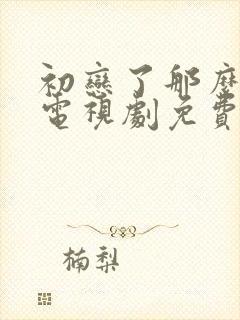 初戀了那麼
電視劇免費
楠梨